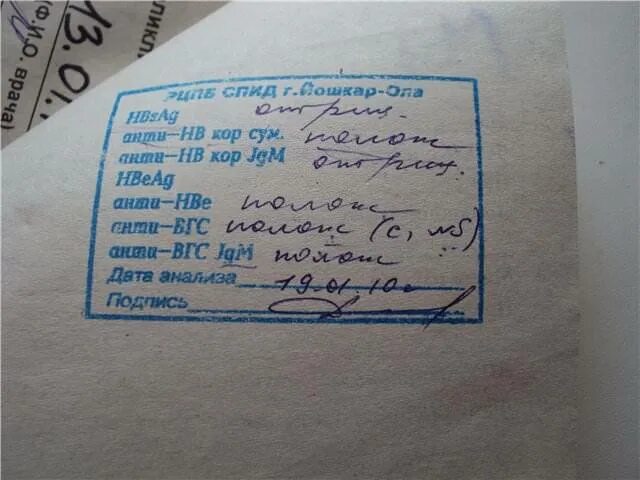 пликл
13.01.
(Ф.И.О. врача)
РЦПБ СПИД г.Йошкар-Ола
HBsAg отриц.
анти-НВ кор сум. полож
анти-НВ кор JgM отриц.
HBeAg
анти-НВе полож
анти-ВГС полож (с, NS)
анти-ВГС JgM полож
Дата анализа 19.01.10г
Подпись